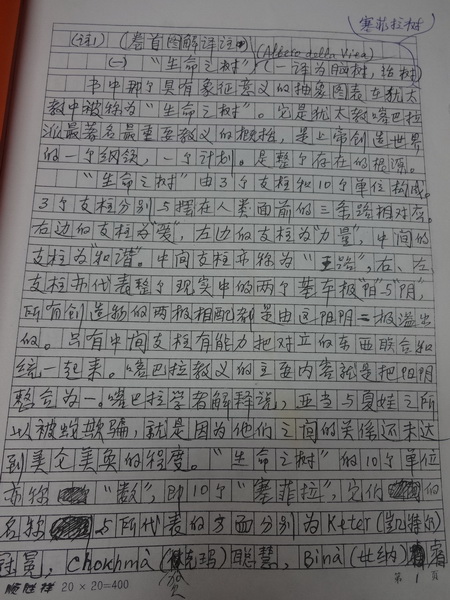 塞菲拉树
(注1) (卷首图解详注)
(一) "生命之树" (Albero della Vita) (一译为脑树,
书中那个具有象征意义的抽象图表在犹太
教中被称为"生命之树"。它是犹太教喀巴拉
派最著名最重要教义的概括,是上帝创造世界
的一个纲领,一个计划。是整个存在的根源。
"生命之树"由3个支柱和10个单位构成。
3个支柱分别与摆在人类面前的三条路相对应。
右边的支柱为"爱",左边的支柱为"力量",中间的
支柱为"和谐"。中间支柱亦称为"王路",右、左
支柱亦代表整个现实中的两个基本极"阳"与"阴",
所有创造物的两极相配都是由这阳阴二极溢出
的。只有中间支柱有能力把对立的东西联合和
统一起来。喀巴拉教义的主要内容就是把阳阴
整合为一。喀巴拉学者解释说,亚当与夏娃之所
以被蛇欺骗,就是因为他们之间的关系还未达
到美仑美奂的程度。"生命之树"的10个单位
亦称"数",即10个"塞菲拉",它们的
名称与所代表的方面分别为Keter(凯特尔)
冠冕,chokhmà(克玛)聪慧,Binà(比纳)
顺胜祥 20×20=400 第1页